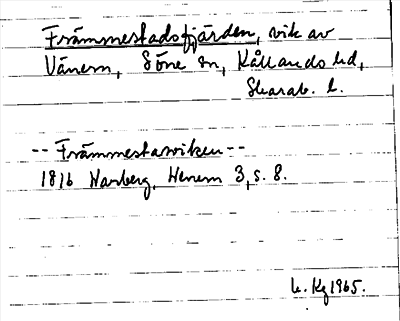 Främmestadsfjärden, vik av
Vänern, Söne sn, Kållands hd,
Skarab. l.
-- Främmestarviken --
1816 Warberg, Wenern 3, s. 8.
Kg 1965.